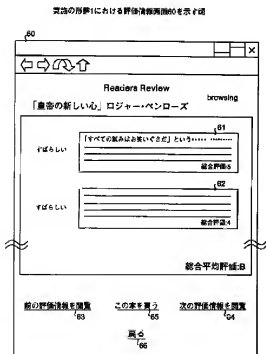 実施の形態1における評価情報画面60を示す図
60
Readers Review
browsing
「皇帝の新しい心」ロジャー・ペンローズ
61
すばらしい
「すべての試みはお笑いぐさだ」という‥‥‥ ‥‥‥‥
総合評価:5
62
すばらしい
総合評価:4
総合平均評価:B
前の評価情報を閲覧
この本を買う
次の評価情報を閲覧
63
65
64
戻る
66